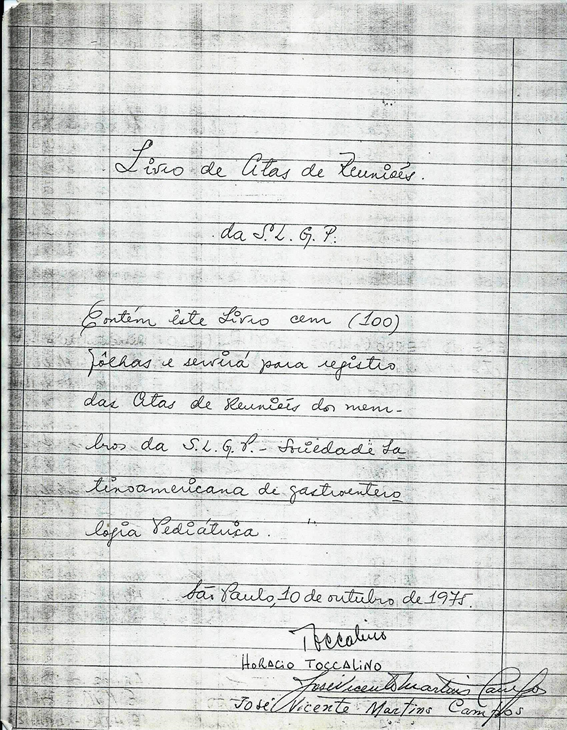 Livro de Atas de Reuniões.
da S. L. G. P.
Contém êste Livro cem (100)
fôlhas e servirá para registro
das Atas de Reuniões dos mem-
bros da S. L. G. P. - Sociedade La
tinoamericana de gastroentero
logia Pediátrica.
São Paulo, 10 de outubro de 1975.
Toccalino
HORACIO TOCCALINO
José Vicente Martins Campos
José Vicente Martins Campos